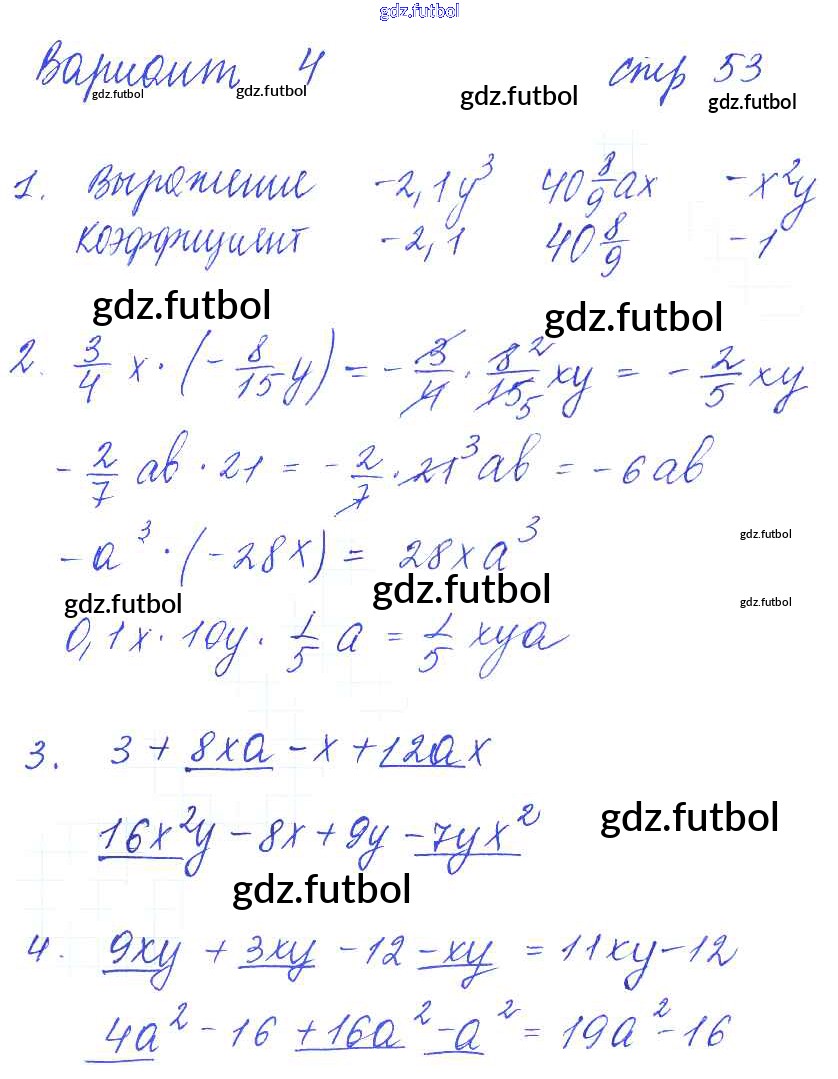 gdz.futbol
Вариант 4 стр 53
gdz.futbol gdz.futbol gdz.futbol gdz.futbol
1. Выражение -2,1y³ 40 8/9 ax -x²y
коэффициент -2,1 40 8/9 -1
gdz.futbol gdz.futbol
2. 3/4 x · (-8/15 y) = -3/4 · 8²/15₅ xy = -2/5 xy
-2/7 ab · 21 = -2/7 · 21³ ab = -6ab
-a³ · (-28x) = 28xa³
gdz.futbol
gdz.futbol gdz.futbol gdz.futbol
0,1x · 10y · 1/5 a = 1/5 xya
3. 3 + 8xa - x + 12ax
16x²y - 8x + 9y - 7yx²
gdz.futbol
gdz.futbol
4. 9xy + 3xy - 12 - xy = 11xy - 12
4a² - 16 + 16a² - a² = 19a² - 16